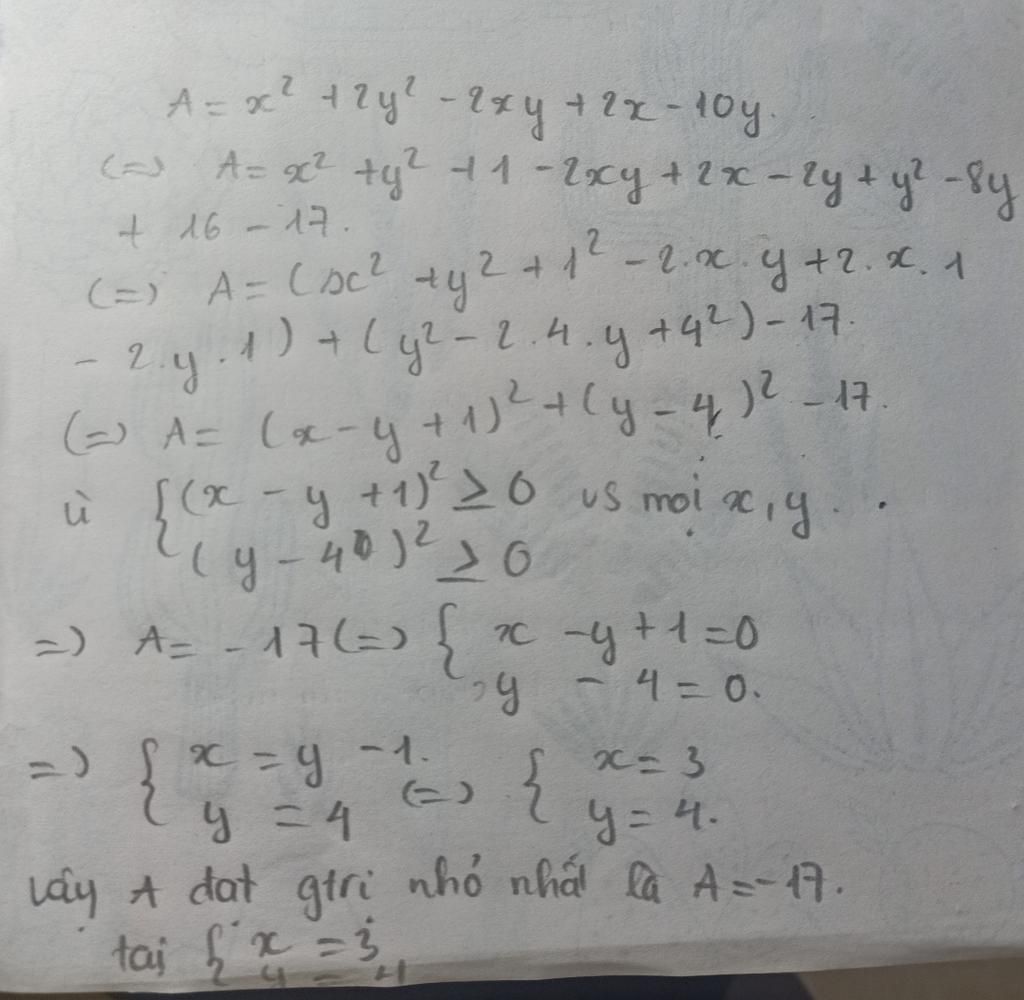 A = x² + 2y² - 2xy + 2x - 10y.
(=) A = x² + y² + 1 - 2xy + 2x - 2y + y² - 8y
+ 16 - 17.
(=) A = (x² + y² + 1² - 2.x.y + 2.x.1
- 2.y.1) + (y² - 2.4.y + 4²) - 17.
(=) A = (x - y + 1)² + (y - 4)² - 17.
vì { (x - y + 1)² ≥ 0 vs mọi x, y.
(y - 4)² ≥ 0
=) A = -17 (=) { x - y + 1 = 0
y - 4 = 0.
=) { x = y - 1. (=) { x = 3
y = 4 y = 4.
vậy A đạt gtri nhỏ nhất là A = -17.
tại { x = 3
y = 4